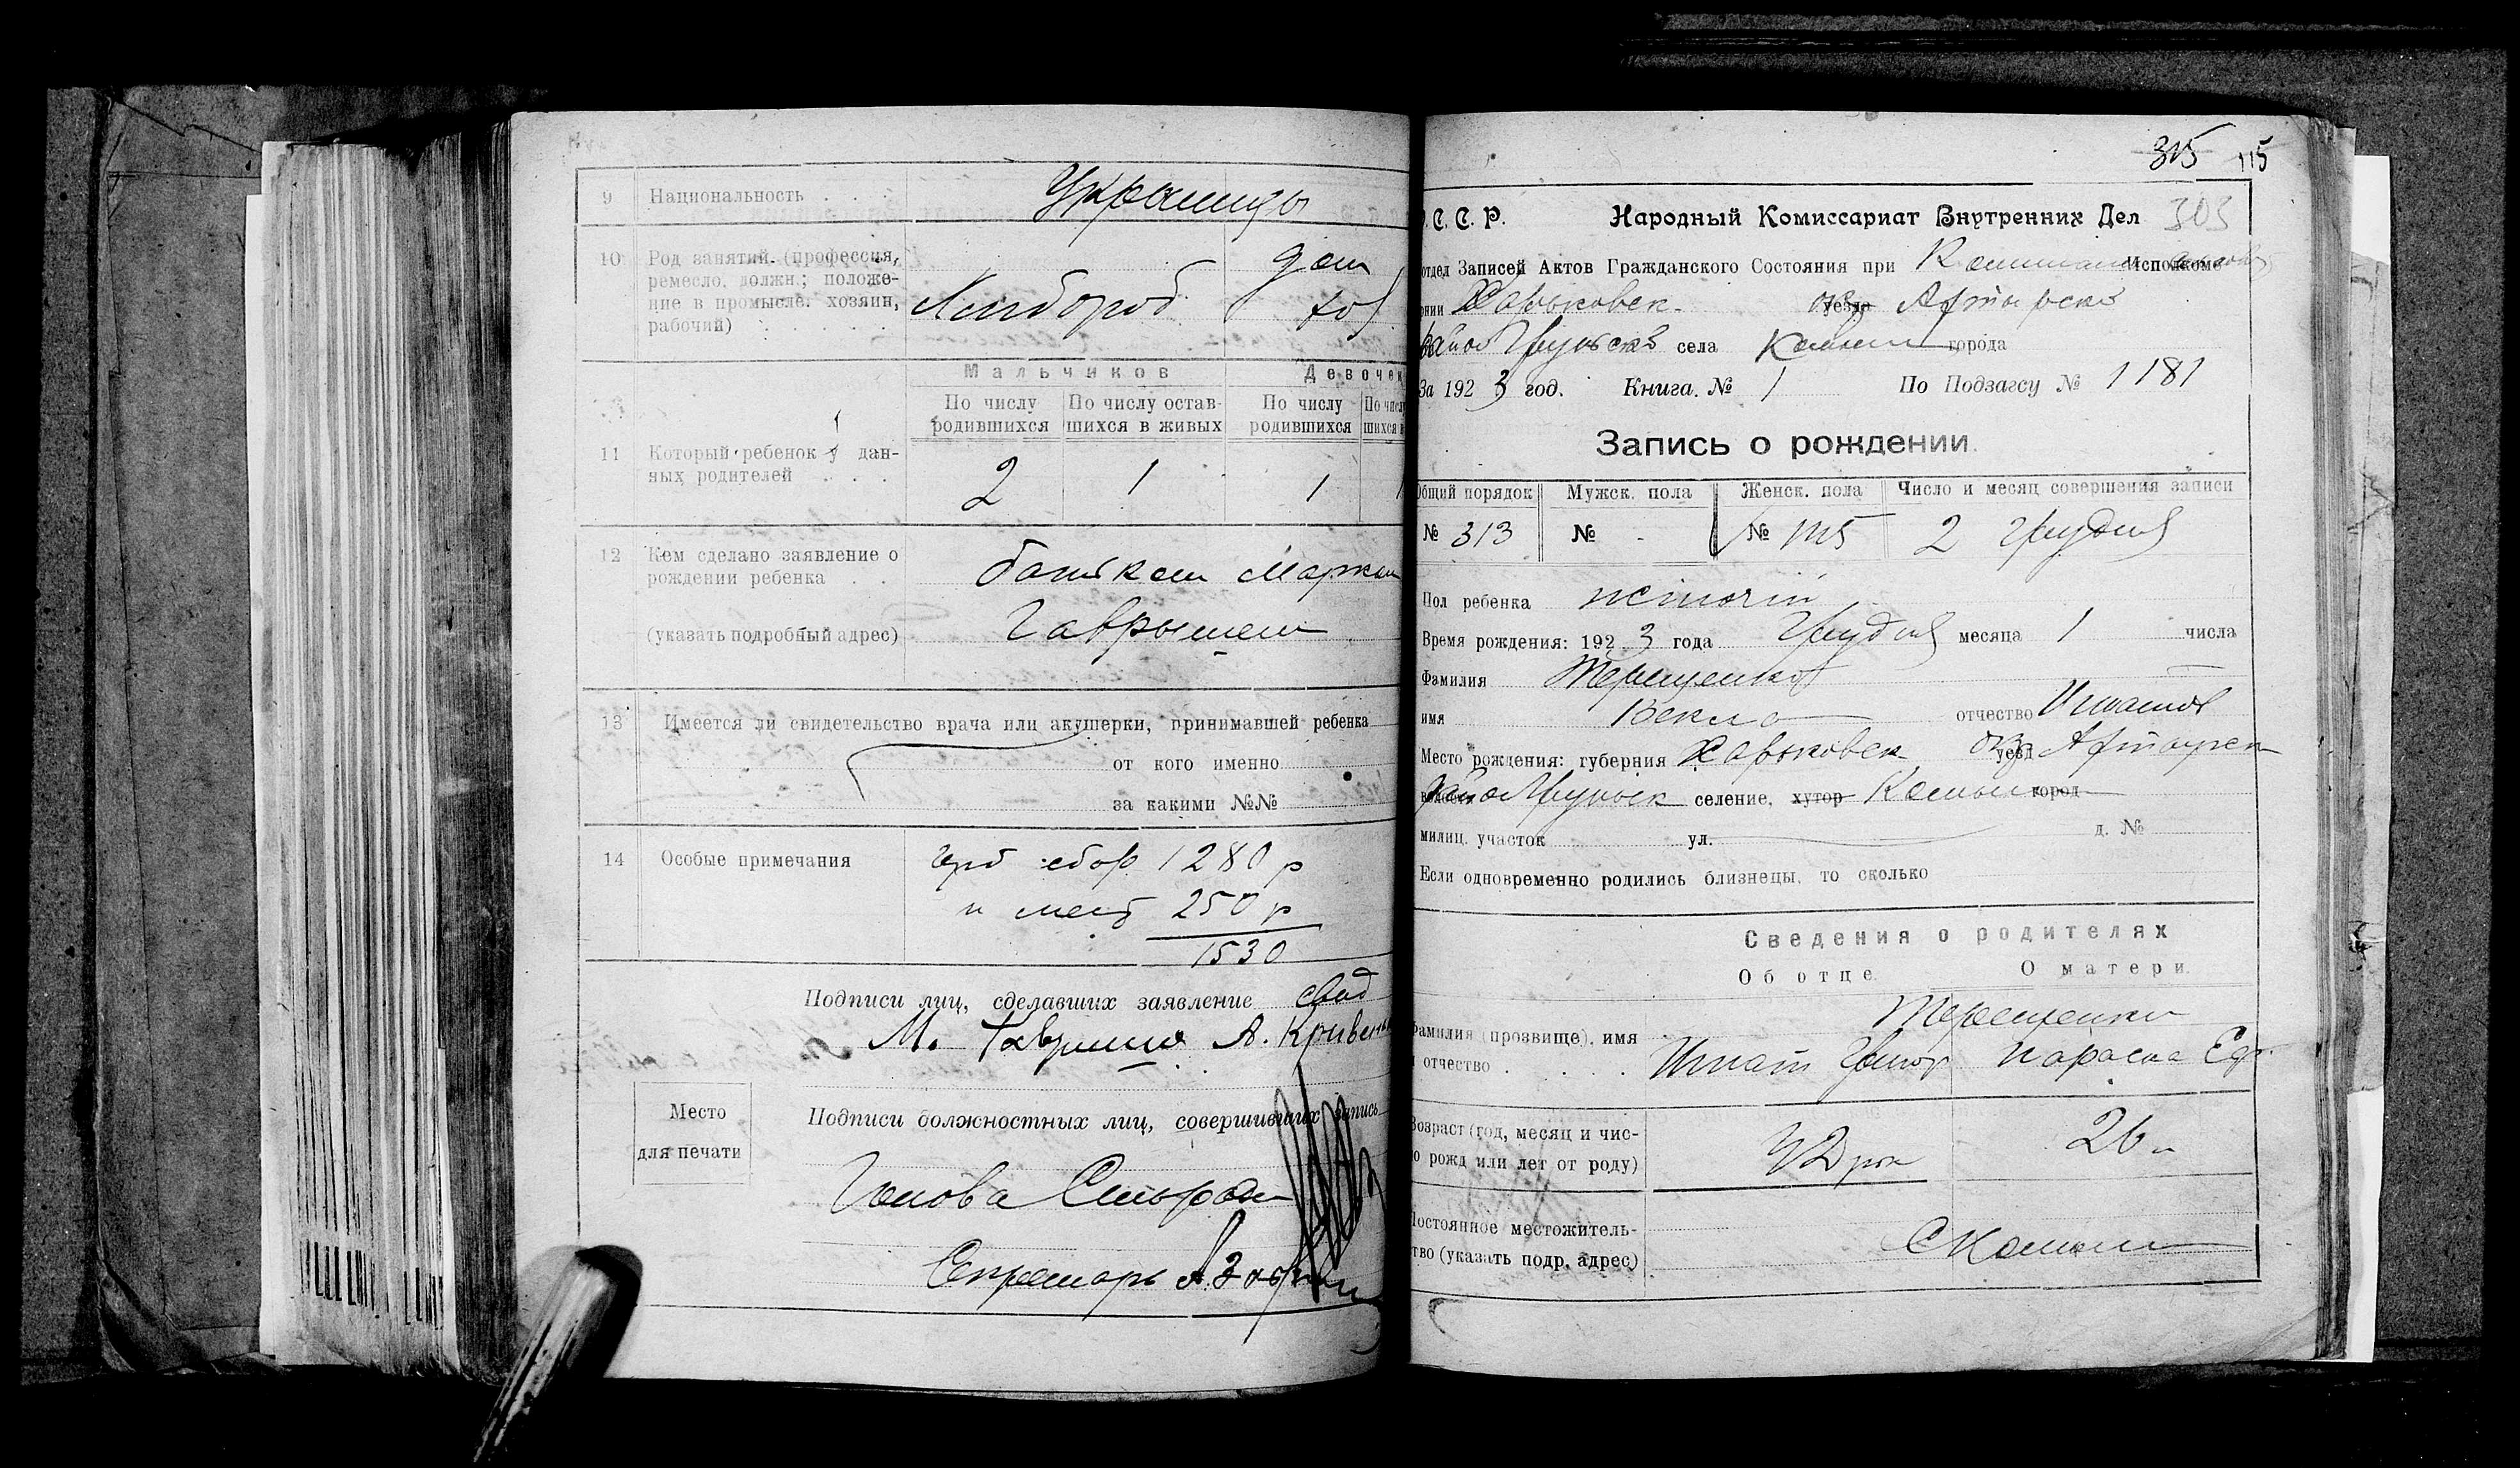 9 Национальность . . . Украинцы
10 Род занятий. (профессия, ремесло, должн.; положение в промысле: хозяин, рабочий) . . . . . Хлибороб дом хоз
Мальчиков Девочек
По числу родившихся По числу оставшихся в живых По числу родившихся По числу
11 Который ребенок у данных родителей . . . 2 1 1 1
12 Кем сделано заявление о рождении ребенка . . батьком Марком
(указать подробный адрес) Гаврышем
13 Имеется ли свидетельство врача или акушерки, принимавшей ребенка
от кого именно
за какими №№
14 Особые примечания сбор 1280 р
и мест 250 р
1530
Подписи лиц, сделавших заявление
М. Гавриш А.
Место для печати
Подписи должностных лиц, совершивших запись
Голова
Секретарь
315 115
С. С. Р. Народный Комиссариат Внутренних Дел 303
отдел Записей Актов Гражданского Состояния при Исполкоме
Харьковск. окр уезда
села города
За 1923 год. Книга. № 1 По Подзагсу № 1181
Запись о рождении.
Общий порядок Мужск. пола Женск. пола Число и месяц совершения записи
№ 313 № - № 2 Грудня
Пол ребенка жіночий
Время рождения: 1923 года Грудня месяца 1 числа
Фамилия Терещенко
имя Векла отчество Игнатов
Место рождения: губерния Харьковск окр уезд
селение, хутор город
милиц. участок ул. д. №
Если одновременно родились близнецы, то сколько
Сведения о родителях
Об отце. О матери.
Терещенки
Фамилия (прозвище), имя и отчество . . . . Игнат Григор Параска
Возраст (год, месяц и число рожд или лет от роду) рок 26
Постоянное местожительство (указать подр. адрес)